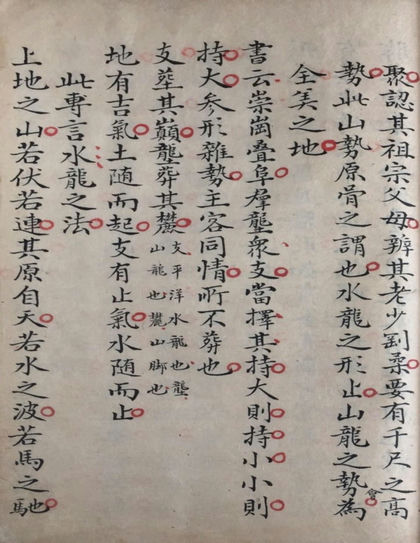 聚認其祖宗父母辨其老少到柔要有千尺之高
勢此山勢原骨之謂也水龍之形止山龍之勢會為
全美之地
書云崇崗叠阜群壟衆支當擇其持大則持小小則
持大参形雜勢主客同情所不葬也
支葬其巔壟葬其麓
支平洋水龍也壟
山龍也麓山脚也
地有吉氣土随而起支有止氣水随而止
此專言水龍之法
上地之山若伏若連其原自天若水之波若馬之馳